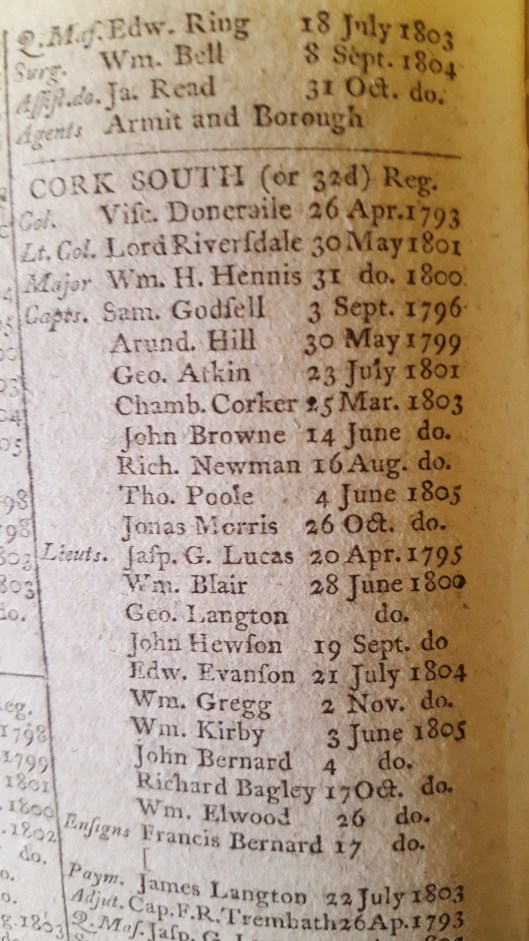 Q.Mas. Edw. Ring 18 July 1803
Surg. Wm. Bell 8 Sept. 1804
Aſſiſt.do. Ja. Read 31 Oct. do.
Agents Armit and Borough
CORK SOUTH (or 32d) Reg.
Col. Viſc. Doneraile 26 Apr. 1793
Lt. Col. Lord Riverſdale 30 May 1801
Major Wm. H. Hennis 31 do. 1800.
Capts. Sam. Godſell 3 Sept. 1796
Arund. Hill 30 May 1799
Geo. Atkin 23 July 1801
Chamb. Corker 25 Mar. 1803
John Browne 14 June do.
Rich. Newman 16 Aug. do.
Tho. Poole 4 June 1805
Jonas Morris 26 Oct. do.
Lieuts. Jaſp. G. Lucas 20 Apr. 1795
Wm. Blair 28 June 1800
Geo. Langton do.
John Hewſon 19 Sept. do
Edw. Evanſon 21 July 1804
Wm. Gregg 2 Nov. do.
Wm. Kirby 3 June 1805
John Bernard 4 do.
Richard Bagley 17 Oct. do.
Wm. Elwood 26 do.
Enſigns Francis Bernard 17 do.
[
Paym. James Langton 22 July 1803
Adjut. Cap. F. R. Trembath 26 Ap. 1793
Q. Maſ. Jaſp. G.